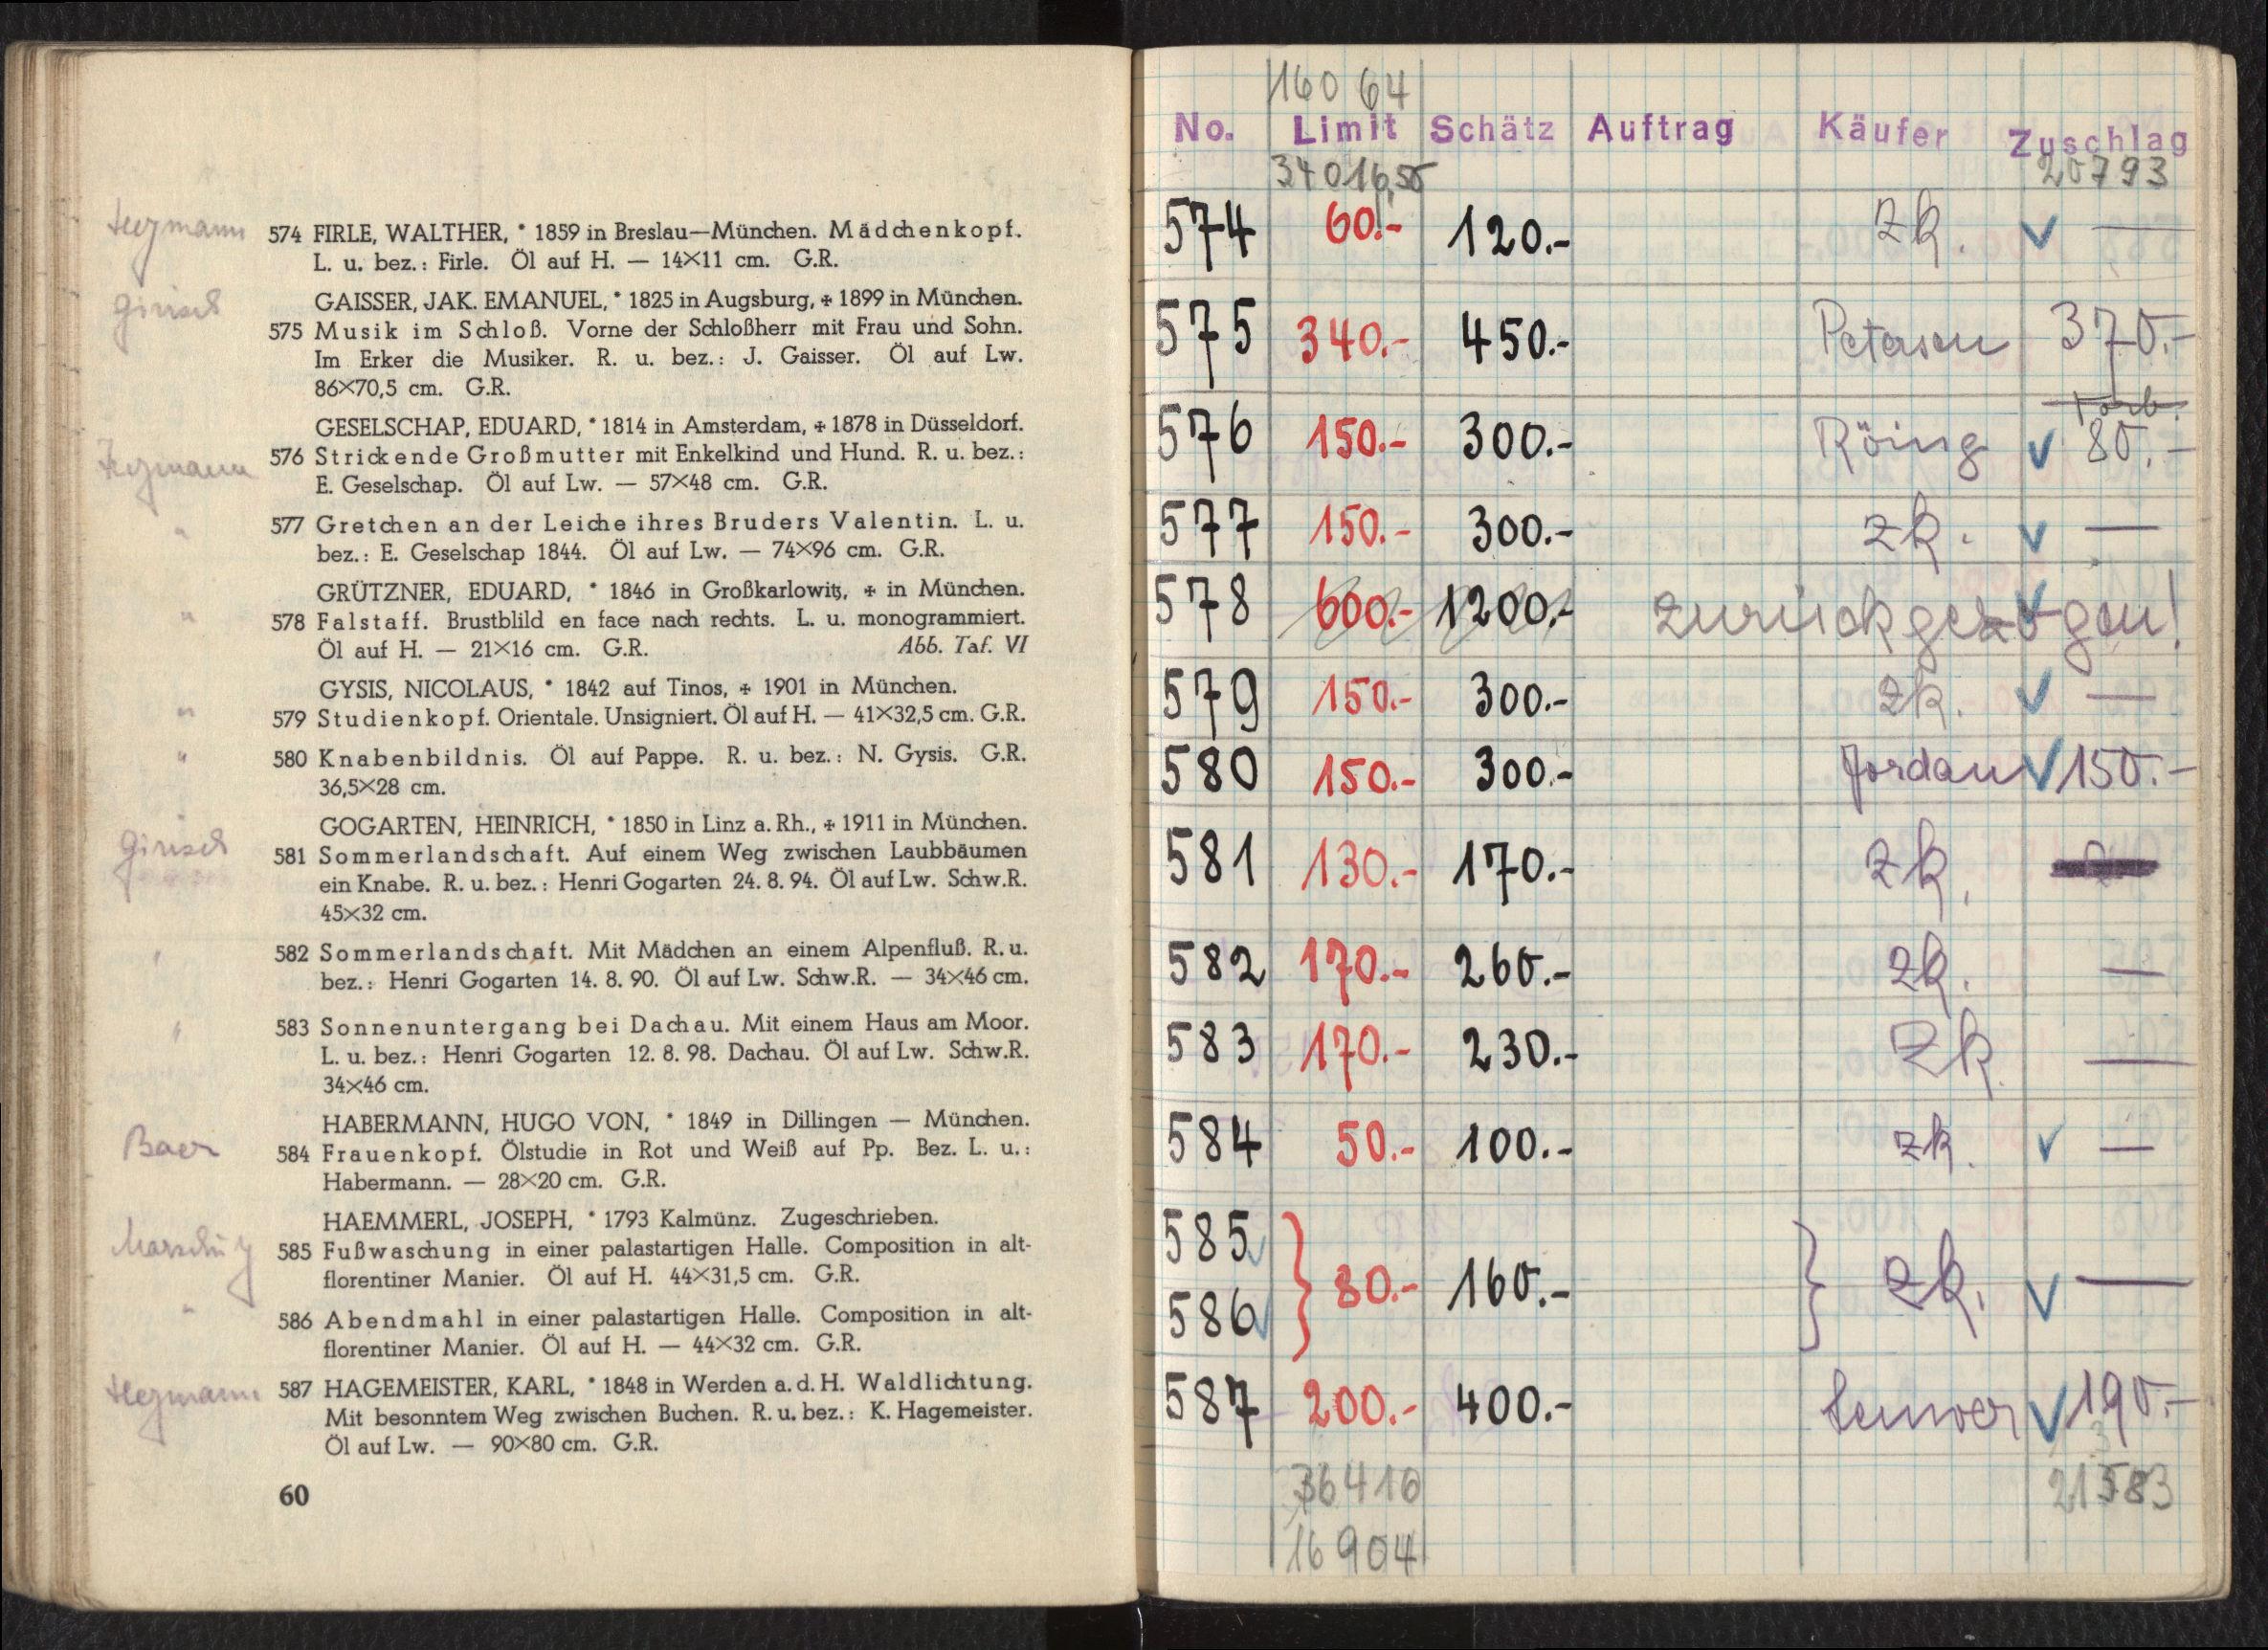 Hegmann 574 FIRLE, WALTHER, * 1859 in Breslau—München. Mädchenkopf.
L. u. bez.: Firle. Öl auf H. — 14×11 cm. G.R.
Girisch GAISSER, JAK. EMANUEL, * 1825 in Augsburg, + 1899 in München.
575 Musik im Schloß. Vorne der Schloßherr mit Frau und Sohn.
Im Erker die Musiker. R. u. bez.: J. Gaisser. Öl auf Lw.
86×70,5 cm. G.R.
GESELSCHAP, EDUARD, * 1814 in Amsterdam, + 1878 in Düsseldorf.
Hegmann 576 Strickende Großmutter mit Enkelkind und Hund. R. u. bez.:
E. Geselschap. Öl auf Lw. — 57×48 cm. G.R.
" 577 Gretchen an der Leiche ihres Bruders Valentin. L. u.
bez.: E. Geselschap 1844. Öl auf Lw. — 74×96 cm. G.R.
GRÜTZNER, EDUARD, * 1846 in Großkarlowitz, + in München.
" 578 Falstaff. Brustblild en face nach rechts. L. u. monogrammiert.
Öl auf H. — 21×16 cm. G.R. Abb. Taf. VI
GYSIS, NICOLAUS, * 1842 auf Tinos, + 1901 in München.
" 579 Studienkopf. Orientale. Unsigniert. Öl auf H. — 41×32,5 cm. G.R.
" 580 Knabenbildnis. Öl auf Pappe. R. u. bez.: N. Gysis. G.R.
36,5×28 cm.
GOGARTEN, HEINRICH, * 1850 in Linz a. Rh., + 1911 in München.
Girisch 581 Sommerlandschaft. Auf einem Weg zwischen Laubbäumen
ein Knabe. R. u. bez.: Henri Gogarten 24. 8. 94. Öl auf Lw. Schw.R.
45×32 cm.
" 582 Sommerlandschaft. Mit Mädchen an einem Alpenfluß. R. u.
bez.: Henri Gogarten 14. 8. 90. Öl auf Lw. Schw.R. — 34×46 cm.
" 583 Sonnenuntergang bei Dachau. Mit einem Haus am Moor.
L. u. bez.: Henri Gogarten 12. 8. 98. Dachau. Öl auf Lw. Schw.R.
34×46 cm.
HABERMANN, HUGO VON, * 1849 in Dillingen — München.
Baer 584 Frauenkopf. Ölstudie in Rot und Weiß auf Pp. Bez. L. u.:
Habermann. — 28×20 cm. G.R.
HAEMMERL, JOSEPH, * 1793 Kalmünz. Zugeschrieben.
585 Fußwaschung in einer palastartigen Halle. Composition in alt-
florentiner Manier. Öl auf H. 44×31,5 cm. G.R.
" 586 Abendmahl in einer palastartigen Halle. Composition in alt-
florentiner Manier. Öl auf H. — 44×32 cm. G.R.
Hegmann 587 HAGEMEISTER, KARL, * 1848 in Werden a. d. H. Waldlichtung.
Mit besonntem Weg zwischen Buchen. R. u. bez.: K. Hagemeister.
Öl auf Lw. — 90×80 cm. G.R.
60
16064
No. Limit Schätz Auftrag Käufer Zuschlag
34016,55 20793
574 60.- 120.- zk. ✓ —
575 340.- 450.- Petersen 370.-
576 150.- 300.- Röing ✓ 80.-
577 150.- 300.- zk. ✓ —
578 600.- 1200.- zurückgezogen! ✓
579 150.- 300.- zk. ✓ —
580 150.- 300.- Jordan ✓ 150.-
581 130.- 170.- zk.
582 170.- 260.- zk. —
583 170.- 230.- zk. —
584 50.- 100.- zk. ✓ —
585 ✓
} 80.- 160.- } zk. ✓ —
586 ✓
587 200.- 400.- ✓ 190.-
36410 21583
16904